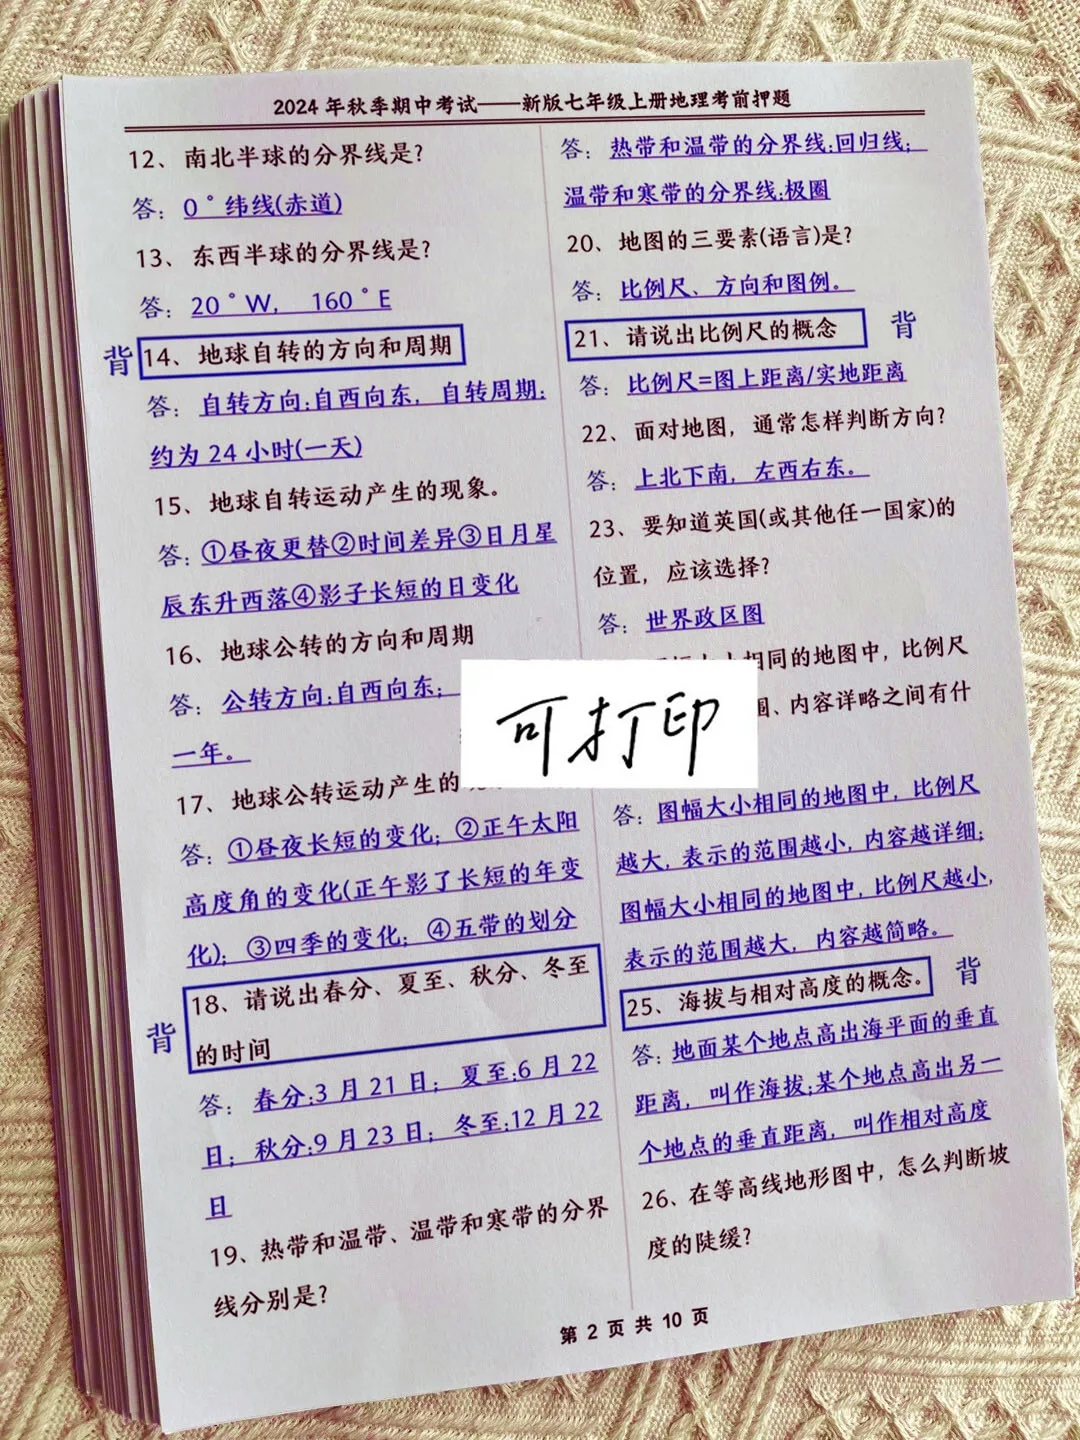 2024 年秋季期中考试——新版七年级上册地理考前押题
12、南北半球的分界线是?
答：0°纬线(赤道)
13、东西半球的分界线是?
答：20°W， 160°E
背
14、地球自转的方向和周期
答：自转方向:自西向东，自转周期:
约为 24 小时(一天)
15、地球自转运动产生的现象。
答：①昼夜更替②时间差异③日月星
辰东升西落④影子长短的日变化
16、地球公转的方向和周期
答：公转方向:自西向东；
一年。
17、地球公转运动产生的
答：①昼夜长短的变化；②正午太阳
高度角的变化(正午影了长短的年变
化)；③四季的变化；④五带的划分
背
18、请说出春分、夏至、秋分、冬至
的时间
答：春分:3 月 21 日；夏至:6 月 22
日；秋分:9 月 23 日；冬至:12 月 22
日
19、热带和温带、温带和寒带的分界
线分别是?
答：热带和温带的分界线:回归线；
温带和寒带的分界线:极圈
20、地图的三要素(语言)是?
答：比例尺、方向和图例。
21、请说出比例尺的概念
背
答：比例尺=图上距离/实地距离
22、面对地图，通常怎样判断方向?
答：上北下南，左西右东。
23、要知道英国(或其他任一国家)的
位置，应该选择?
答：世界政区图
相同的地图中，比例尺
、内容详略之间有什
可打印
答：图幅大小相同的地图中，比例尺
越大，表示的范围越小，内容越详细;
图幅大小相同的地图中，比例尺越小，
表示的范围越大，内容越简略。
25、海拔与相对高度的概念。
背
答：地面某个地点高出海平面的垂直
距离，叫作海拔;某个地点高出另一
个地点的垂直距离，叫作相对高度
26、在等高线地形图中，怎么判断坡
度的陡缓?
第 2 页 共 10 页